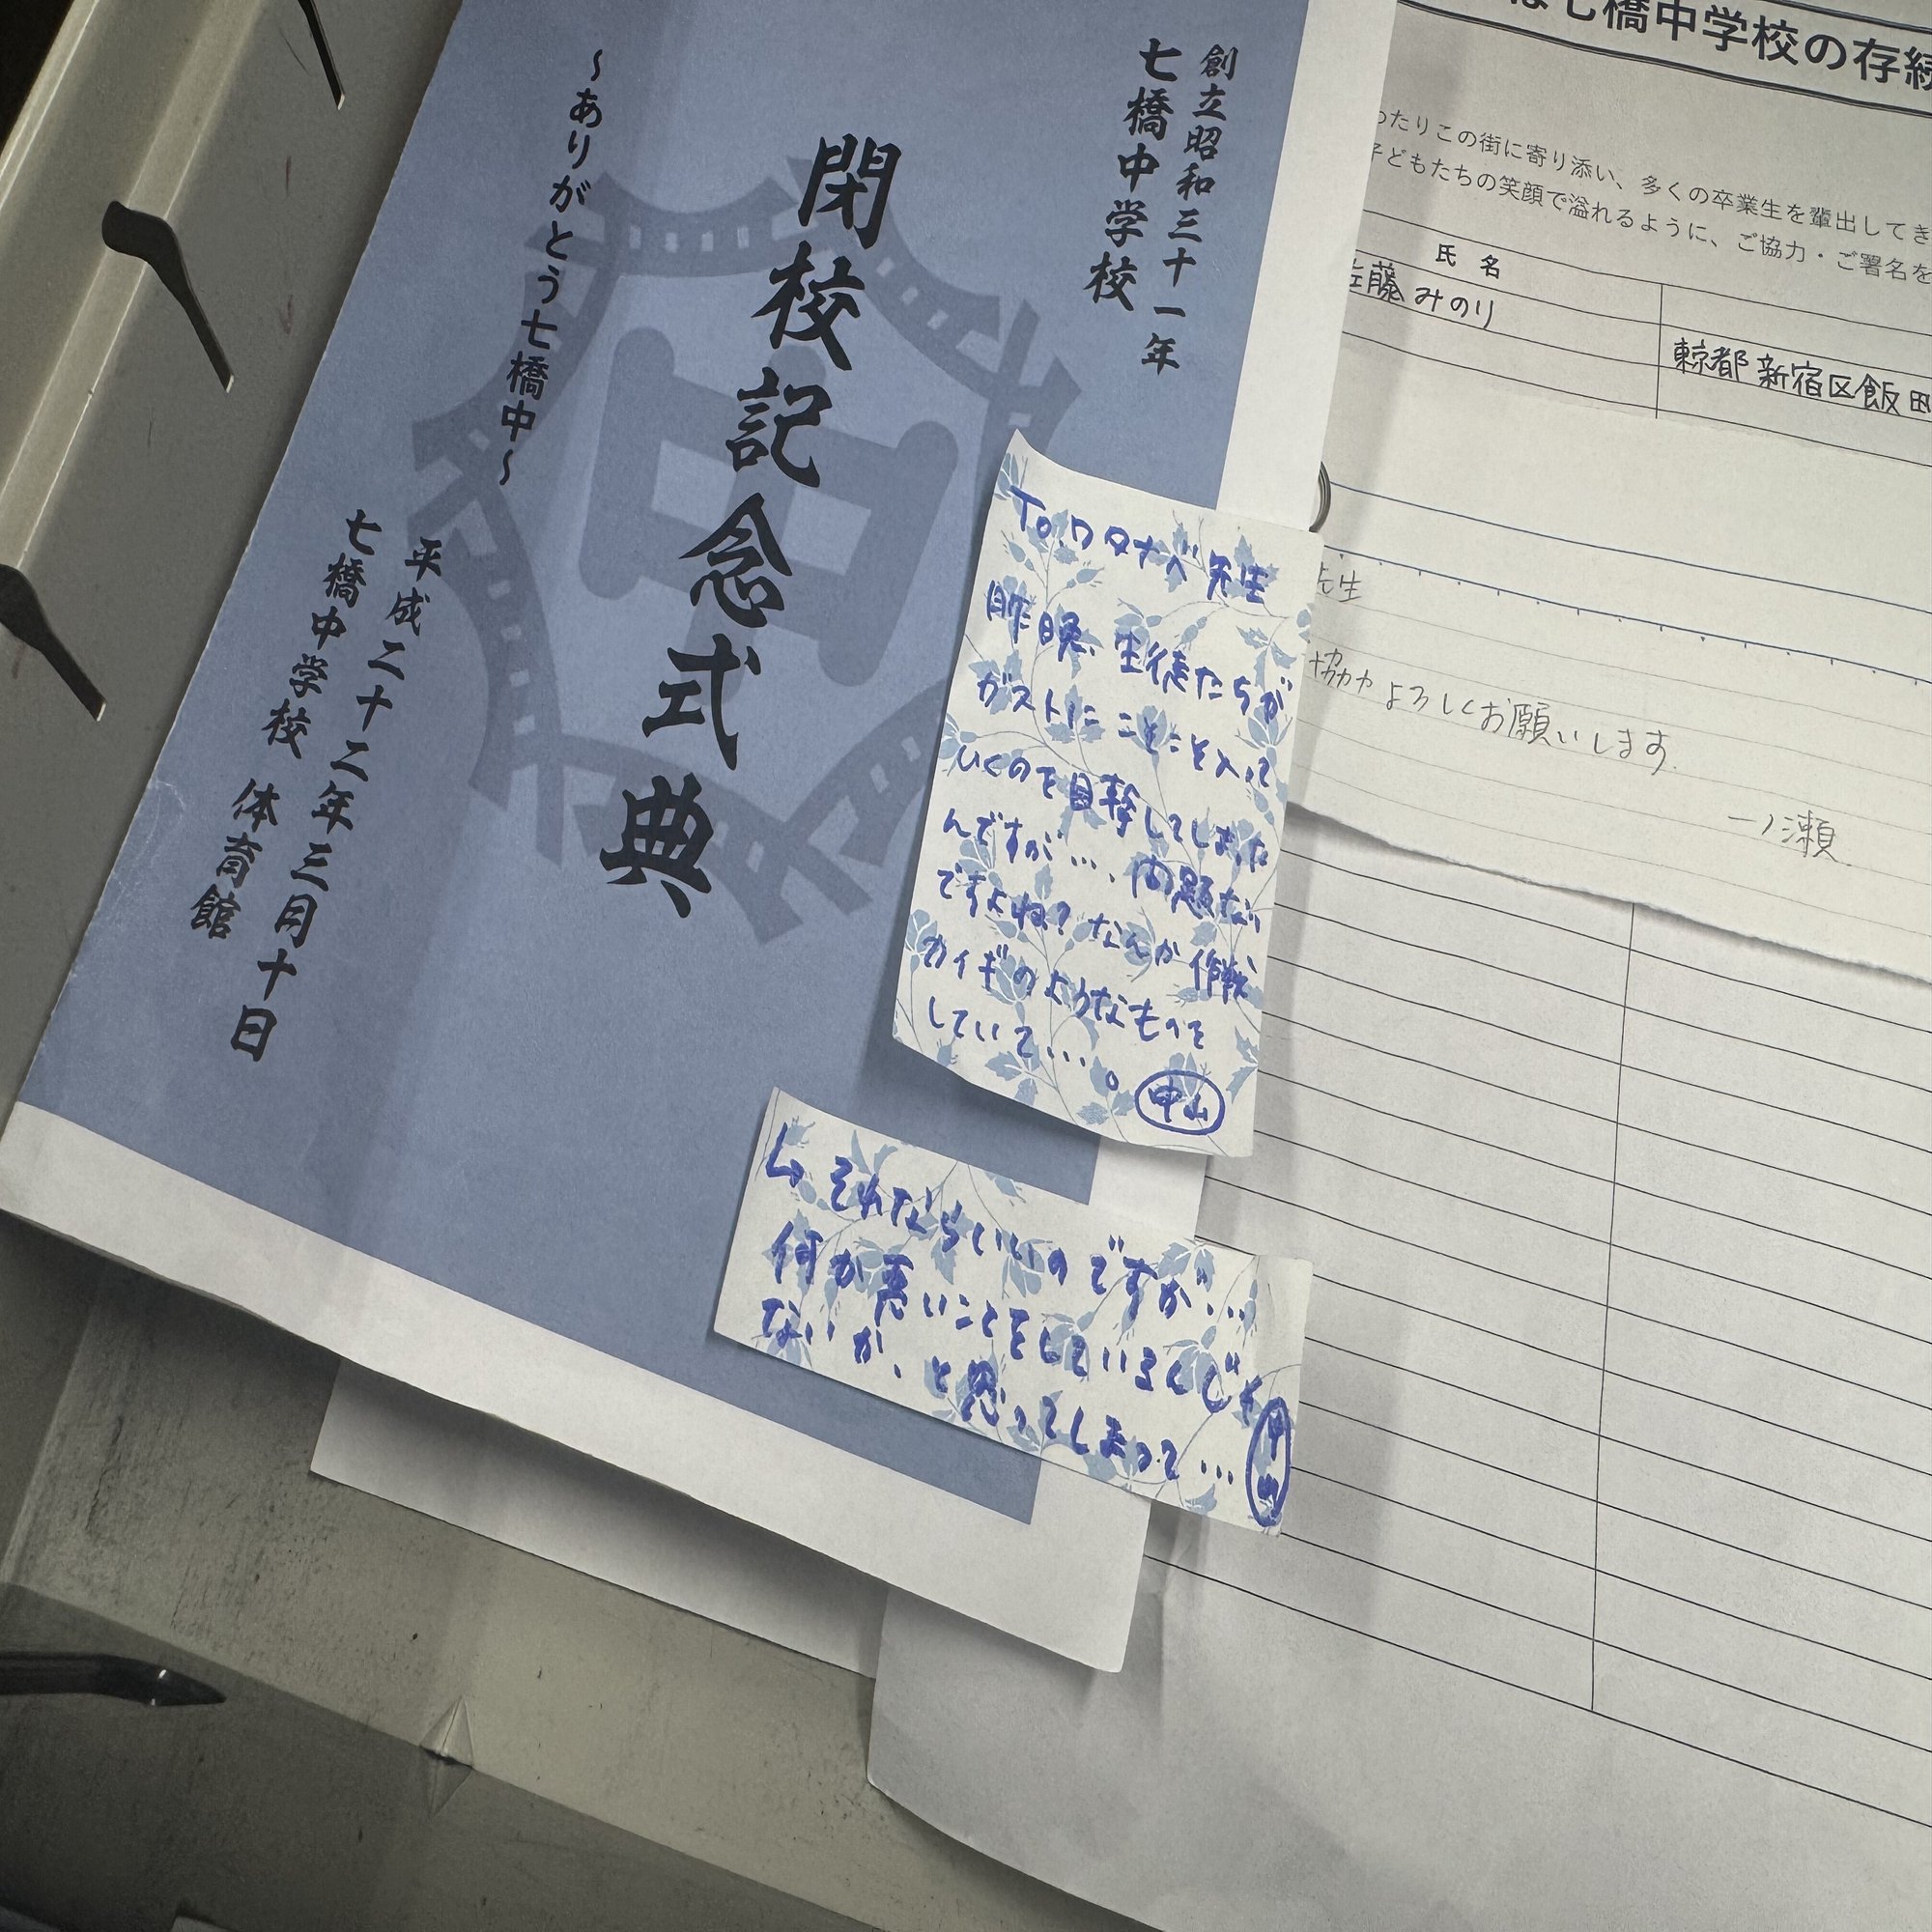 創立昭和三十一年
七橋中学校
閉校記念式典
~ありがとう七橋中~
平成二十二年三月十日
七橋中学校 体育館
To.ワタナベ先生
昨晩、生徒たちが
ガストにこそこそ入って
いくのを目撃してしまった
んですが…、問題ない
ですよね？なんか作戦
カイギのようなものを
していて…。
中山
↳それならいいのですが…
何か悪いことをしているんじゃ
ないか、と思ってしまって…
中山
は七橋中学校の存続
わたりこの街に寄り添い、多くの卒業生を輩出してき
子どもたちの笑顔で溢れるように、ご協力・ご署名を
氏名
佐藤みのり
東京都新宿区飯田
先生
協力よろしくお願いします.
一ノ瀬.